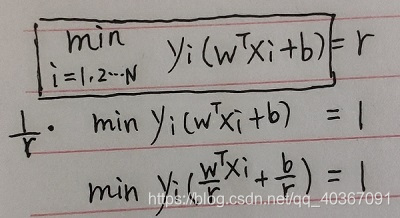 min yi(wᵀxi+b) = r
i=1,2…N
1/r · min yi(wᵀxi+b) = 1
min yi(wᵀxi/r + b/r) = 1
https://blog.csdn.net/qq_40367091